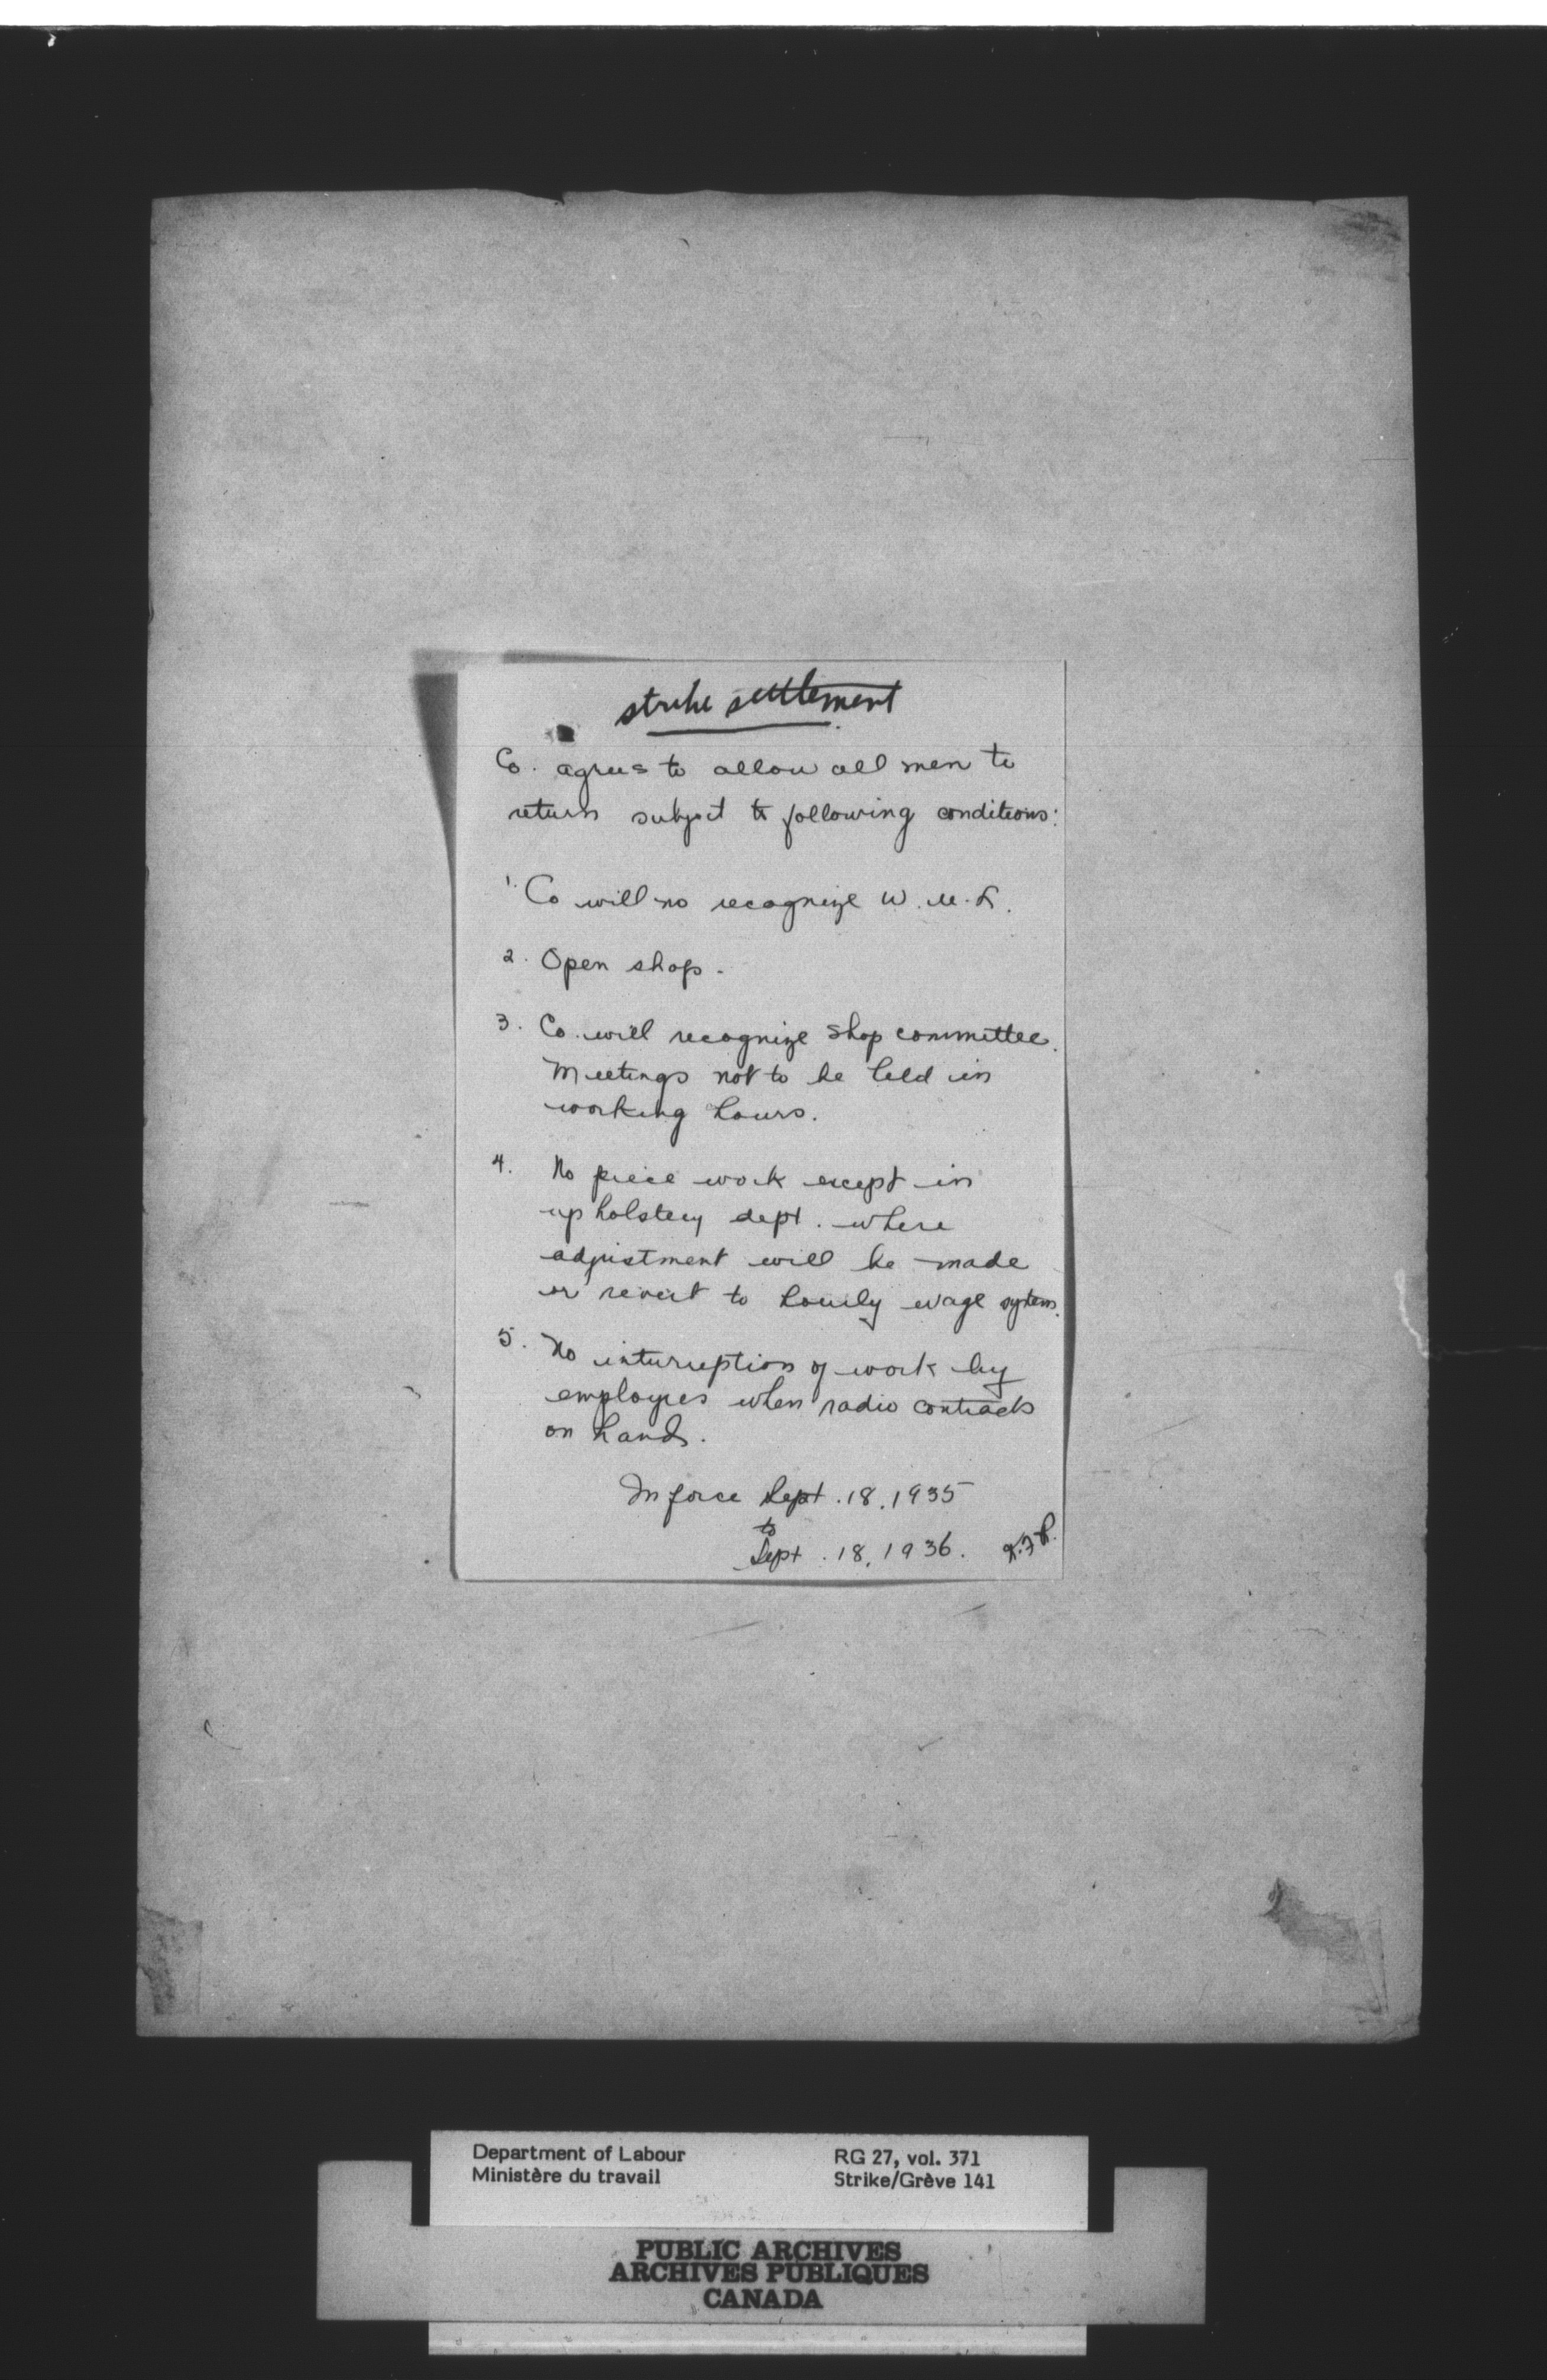 strike settlement
Co. agrees to allow all men to
return subject to following conditions:
1. Co will no recognize W.U.L.
2. Open shop.
3. Co. will recognize shop committee.
Meetings not to be held in
working hours.
4. No piece work except in
upholstery dept. where
adjustment will be made
or revert to hourly wage system.
5. No interruption of work by
employees when radio contracts
on hand.
In force Sept. 18, 1935
to
Sept. 18, 1936.
Department of Labour
Ministère du travail
RG 27, vol. 371
Strike/Grève 141
PUBLIC ARCHIVES
ARCHIVES PUBLIQUES
CANADA